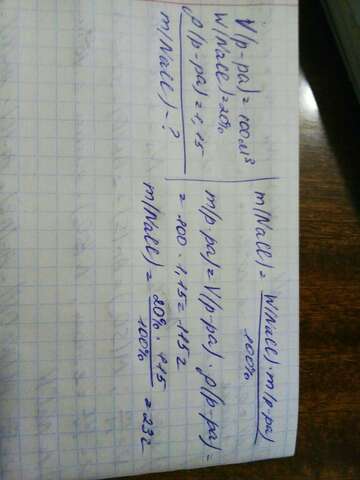 V(р-ра)=100мл
W(NaCl)=20%
ρ(р-ра)=1,15
m(NaCl)-?
m(NaCl)= W(NaCl)·m(р-ра)
100%
m(р-ра)=V(р-ра)·ρ(р-ра)=
=100·1,15=115г
m(NaCl)= 20%·115 =23г
100%